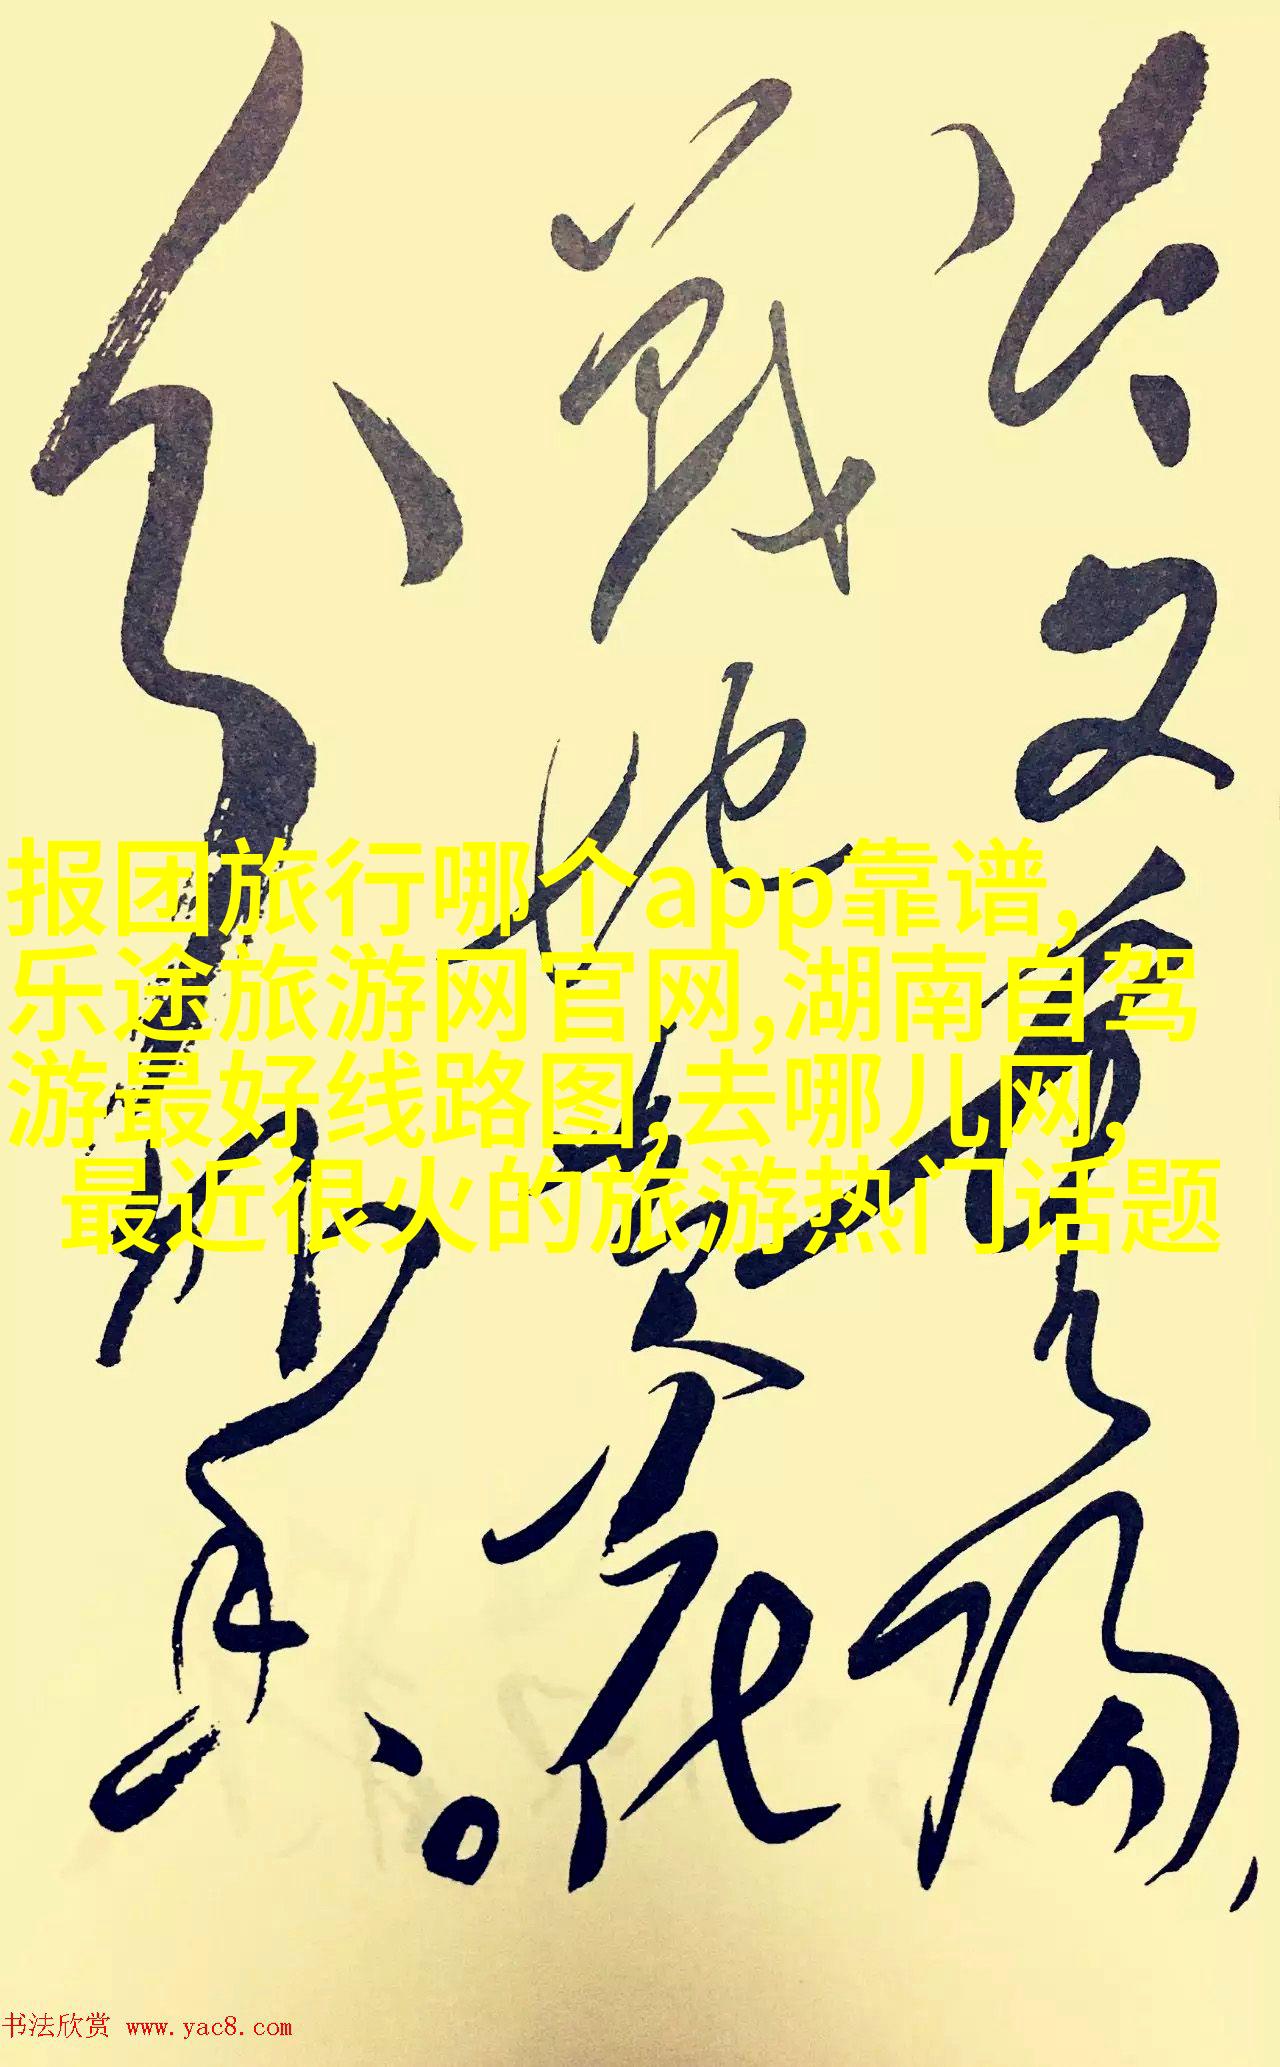 今又重阳，
战地黄花
分外香。
报团旅行哪个app靠谱,
乐途旅游网官网,湖南自驾
游最好线路图,去哪儿网,
最近很火的旅游热门话题
书法欣赏 www.yac8.com